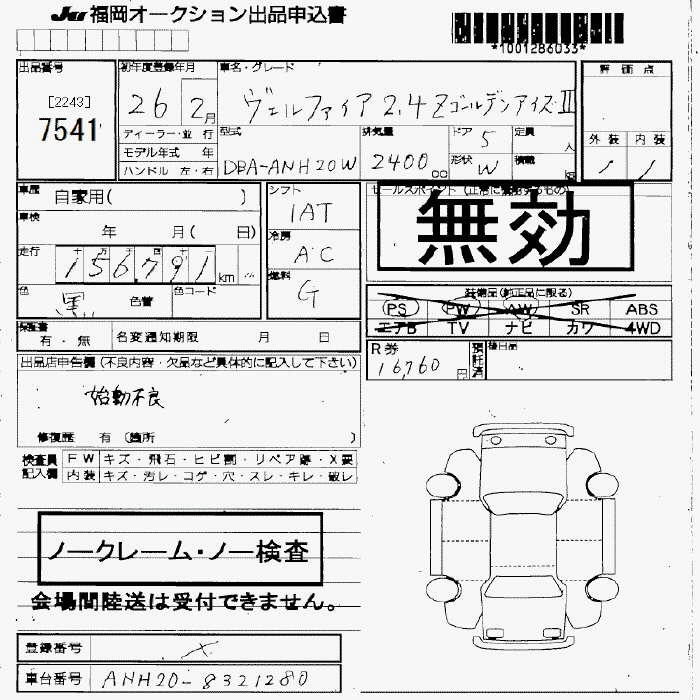 JU 福岡オークション出品申込書
*1001286033*
出品番号 初年度登録年月 車名・グレード 評価点
[2243]
7541
26 2月 ヴェルファイア 2.4 Zゴールデンアイズ II
ディーラー・並行 型式 排気量 ドア 5 定員 人 外装 内装
モデル年式 年 DBA-ANH20W 2400cc 形状 W 積載 / /
ハンドル 左・右
車歴 自家用( ) シフト セールスポイント
1AT 無効
車検 年 月( 日) 冷房
AC
走行 十 万 千 百 十 一
156,791 km 燃料
G
色 黒 色替 色コード
装備品(純正品に限る)
PS PW AW SR ABS
エアB TV ナビ カワ 4WD
保証書 有・無 名変通知期限 月 日
R券 預託済 後日品
16,760円
出品店申告欄(不良内容・欠品など具体的に記入して下さい)
始動不良
修復歴 有 〔箇所 〕
検査員記入欄 FW キズ・飛石・ヒビ割・リペア跡・X要
内装 キズ・汚レ・コゲ・穴・スレ・キレ・破レ
ノークレーム・ノー検査
会場間陸送は受付できません。
登録番号 ×
車台番号 ANH20-8321280